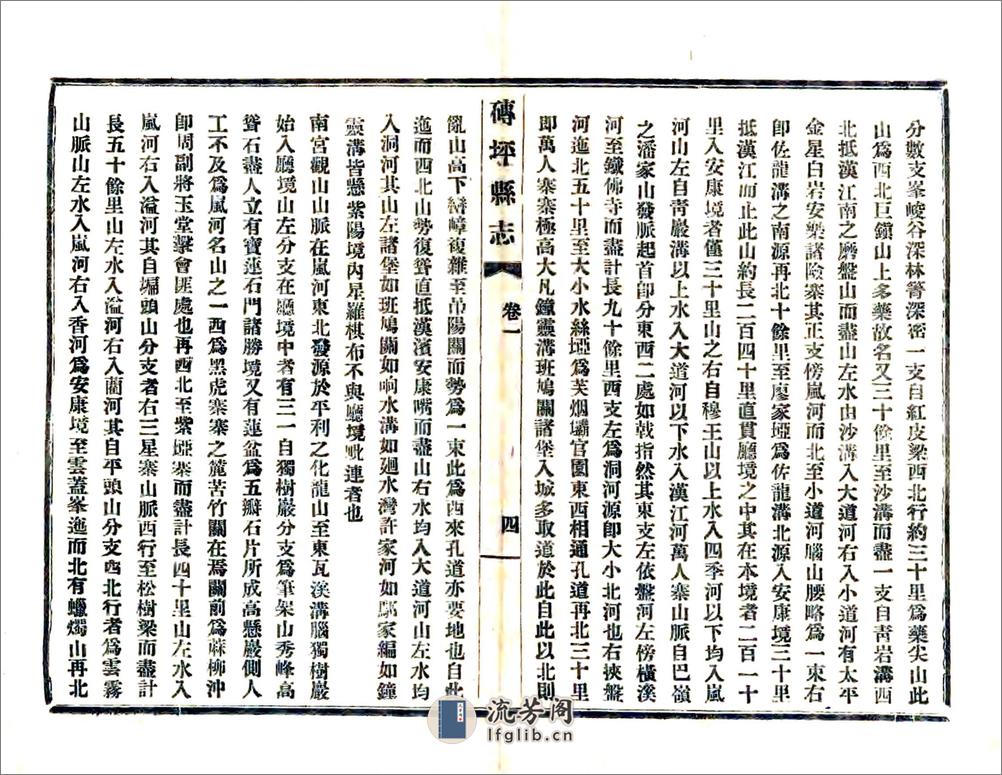 分數支峯峻谷深林箐深密一支自紅皮梁西北行約三十里爲藥尖山此
山爲西北巨鎭山上多藥故名又三十餘里至沙溝而盡一支自靑岩溝西
北抵漢江南之磨盤山而盡山左水由沙溝入大道河右入小道河有太平
金星白岩安樂諸險寨其正支傍嵐河而北至小道河腦山腰略爲一束右
卽佐龍溝之南源再北十餘里至廖家埡爲佐龍溝北源入安康境三十里
抵漢江而止此山約長二百四十里直貫廳境之中其在本境者二百一十
里入安康境者僅三十里山之右自穆王山以上水入四季河以下均入嵐
河山左自靑巖溝以上水入大道河以下水入漢江河萬人寨山脈自巴嶺
之潘家山發脈起首卽分東西二處如戟指然其東支左依盤河左傍橫溪
河至鐵佛寺而盡計長九十餘里西支左爲洞河源卽大小北河也右挾盤
河迤北五十里至大小水絲埡爲芙烟壩官園東西相通孔道再北三十里
卽萬人寨寨極高大凡鐘靈溝班鳩關諸堡入城多取道於此自此以北則
磚坪縣志
卷一
四
亂山高下嶂複雜至吊陽關而勢爲一東此爲西來孔道亦要地也自此
迤而西北山勢復聳直抵漢濱安康嘴而盡山右水均入大道河山左水均
入洞河其山左諸堡如班鳩關如响水溝如廻水灣許家河如鄢家編如鐘
靈溝皆懸紫陽境內星羅棋布不與廳境毗連者也
南宮觀山山脈在嵐河東北發源於平利之化龍山至東瓦溪溝腦獨樹巖
始入廳境山左分支在廳境中者有三一自獨樹巖分支爲筆架山秀峰高
聳石盡人立有寶蓮石門諸勝境又有蓮盆爲五瓣石片所成高懸巖側人
工不及爲嵐河名山之一西爲黑虎寨寨之麓苦竹關在焉關前爲蔴柳沖
卽周副將玉堂擊會匪處也再西北至紫埡寨而盡計長四十里山左水入
嵐河右入溢河其自塌頭山分支者右三星寨山脈西行至松樹梁而盡計
長五十餘里山左水入溢河右入藺河其自平頭山分支西北行者爲雲霧
山脈山左水入嵐河右入香河爲安康境至雲蓋峯迤而北有蠟燭山再北
流芳阁
lfglib.cn